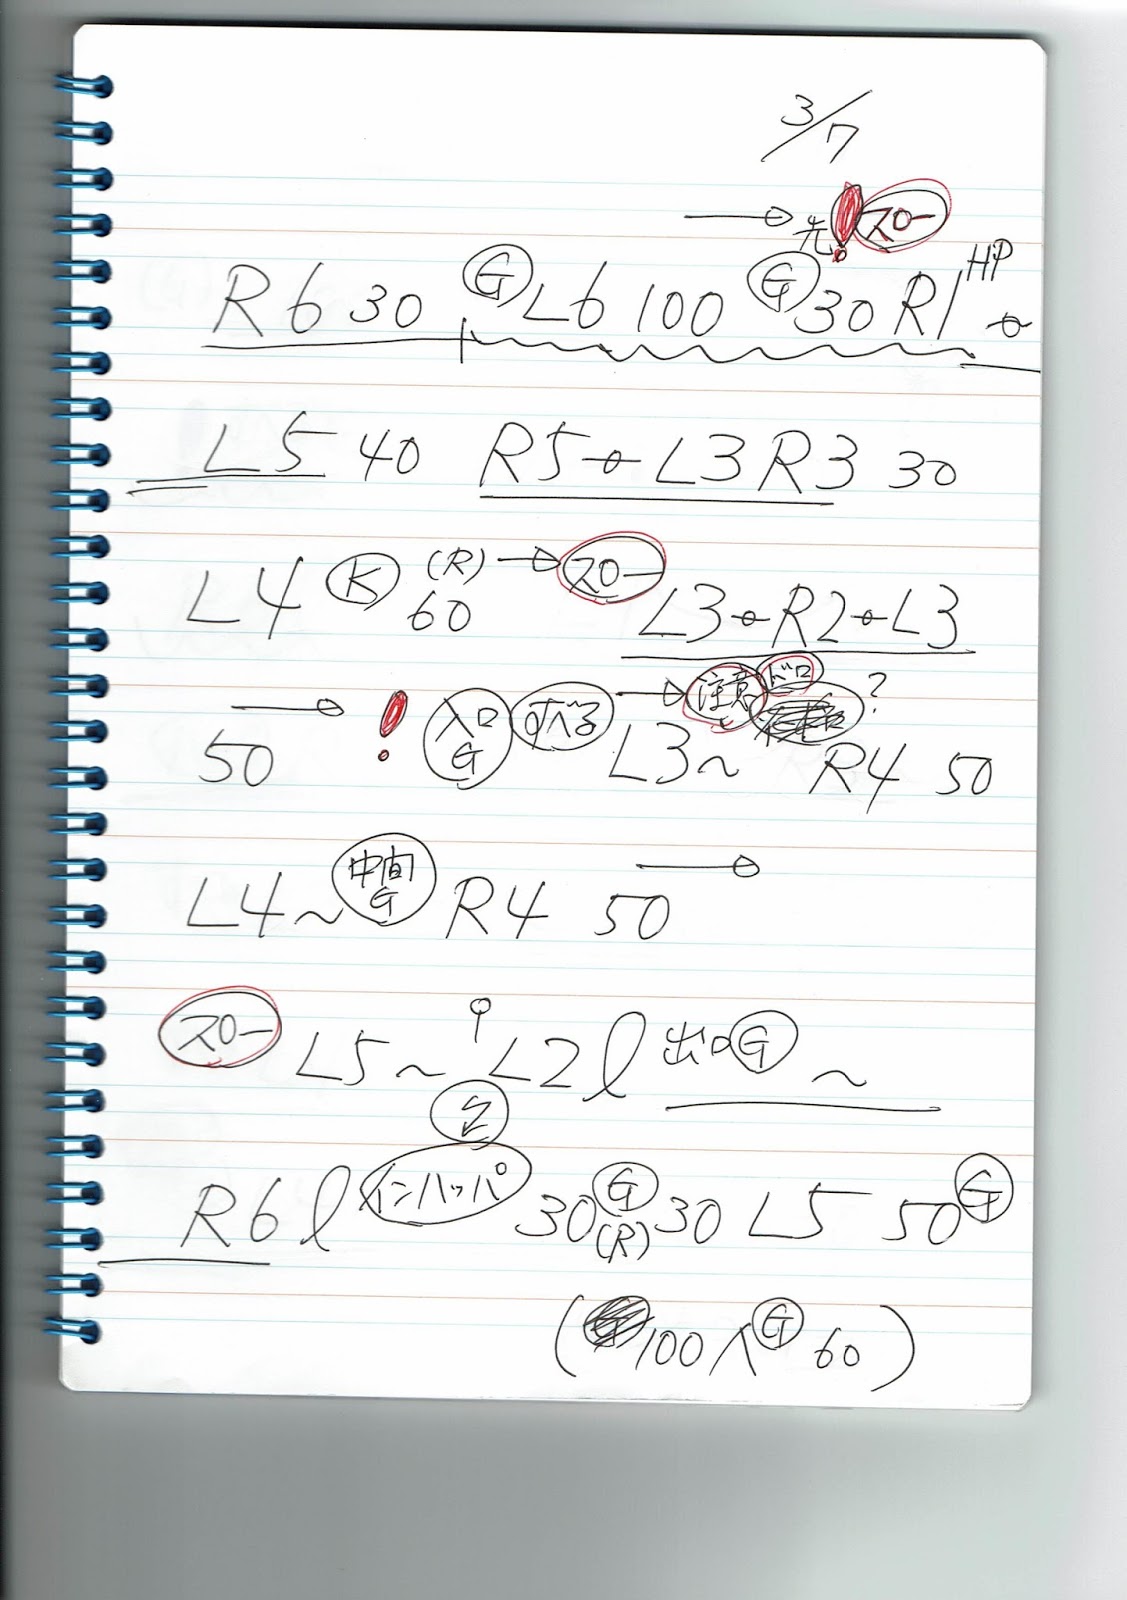 3/7
→ 先 ! スロー
R6 30 G L6 100 G 30 R1 HP →
L5 40 R5→L3 R3 30
L4 K (R) 60 → スロー L3→R2→L3
50 → ! 入口G すべる L3~ → 注意 ドロ ? R4 50
L4~ 中間G R4 50 →
スロー L5~ L2 l 出口G ~
R6 l インハッパ 30 G (R) 30 L5 50 G
(100 ∧ G 60)